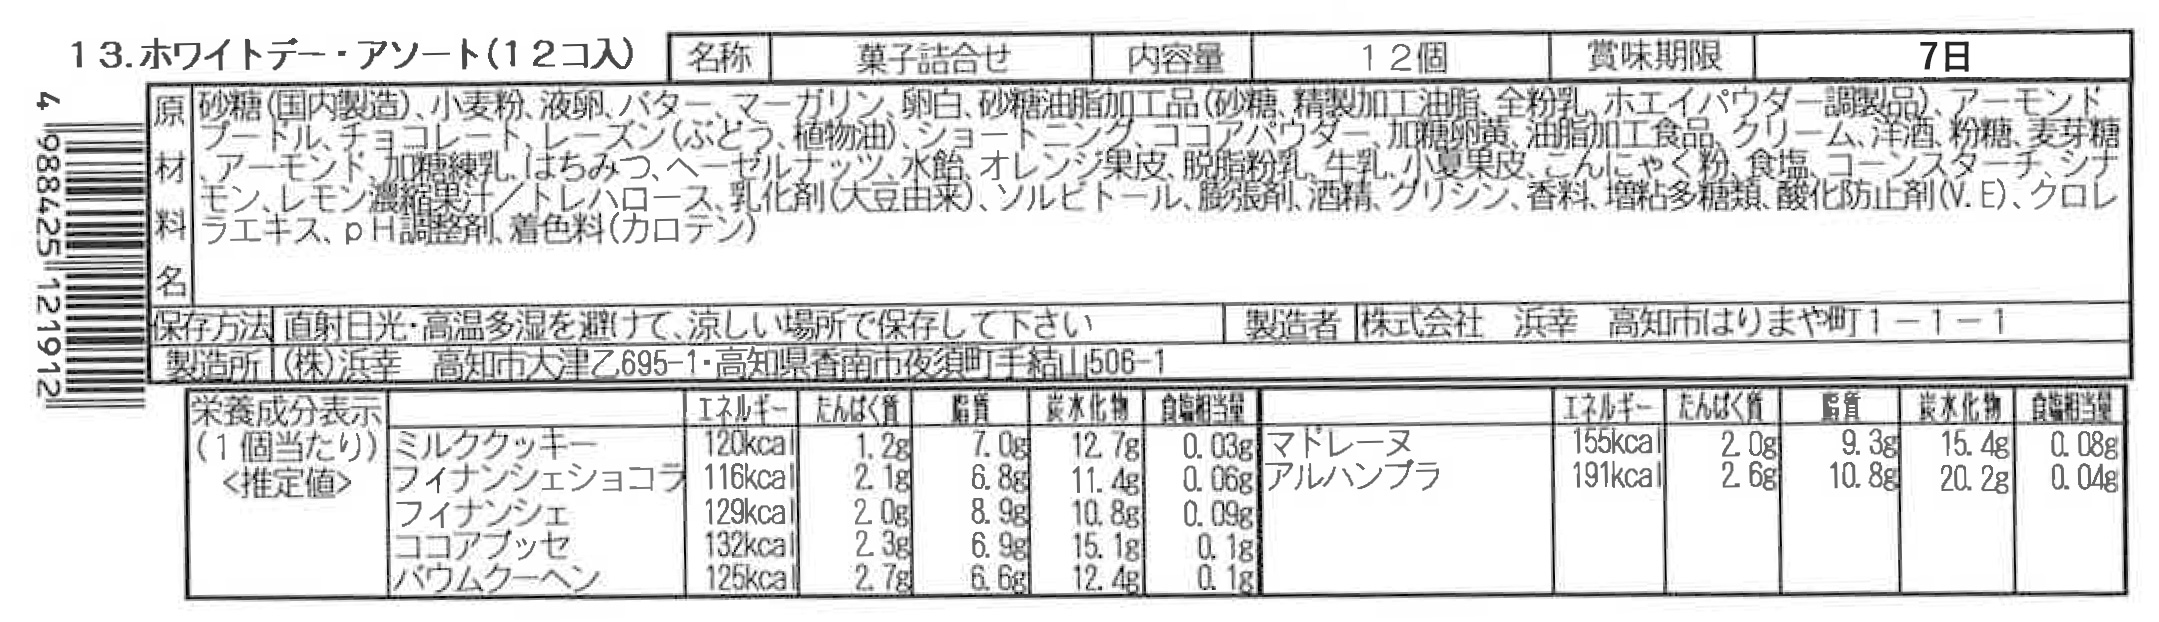 13.ホワイトデー・アソート(12コ入)
名称 菓子詰合せ 内容量 12個 賞味期限 7日
原材料名
砂糖(国内製造)、小麦粉、液卵、バター、マーガリン、卵白、砂糖油脂加工品(砂糖、精製加工油脂、全粉乳、ホエイパウダー調製品)、アーモンド
プードル、チョコレート、レーズン(ぶどう、植物油)、ショートニング、ココアパウダー、加糖卵黄、油脂加工食品、クリーム、洋酒、粉糖、麦芽糖
、アーモンド、加糖練乳、はちみつ、ヘーゼルナッツ、水飴、オレンジ果皮、脱脂粉乳、牛乳、小夏果皮、こんにゃく粉、食塩、コーンスターチ、シナ
モン、レモン濃縮果汁/トレハロース、乳化剤(大豆由来)、ソルビトール、膨張剤、酒精、グリシン、香料、増粘多糖類、酸化防止剤(V.E)、クロレ
ラエキス、pH調整剤、着色料(カロテン)
保存方法 直射日光・高温多湿を避けて、涼しい場所で保存して下さい 製造者 株式会社 浜幸 高知市はりまや町1-1-1
製造所 (株)浜幸 高知市大津乙695-1・高知県香南市夜須町手結山506-1
4988425121912
栄養成分表示
(1個当たり)
<推定値>
エネルギー たんぱく質 脂質 炭水化物 食塩相当量
ミルククッキー 120kcal 1.2g 7.0g 12.7g 0.03g
フィナンシェショコラ 116kcal 2.1g 6.8g 11.4g 0.06g
フィナンシェ 129kcal 2.0g 8.9g 10.8g 0.09g
ココアブッセ 132kcal 2.3g 6.9g 15.1g 0.1g
バウムクーヘン 125kcal 2.7g 6.6g 12.4g 0.1g
エネルギー たんぱく質 脂質 炭水化物 食塩相当量
マドレーヌ 155kcal 2.0g 9.3g 15.4g 0.08g
アルハンブラ 191kcal 2.6g 10.8g 20.2g 0.04g